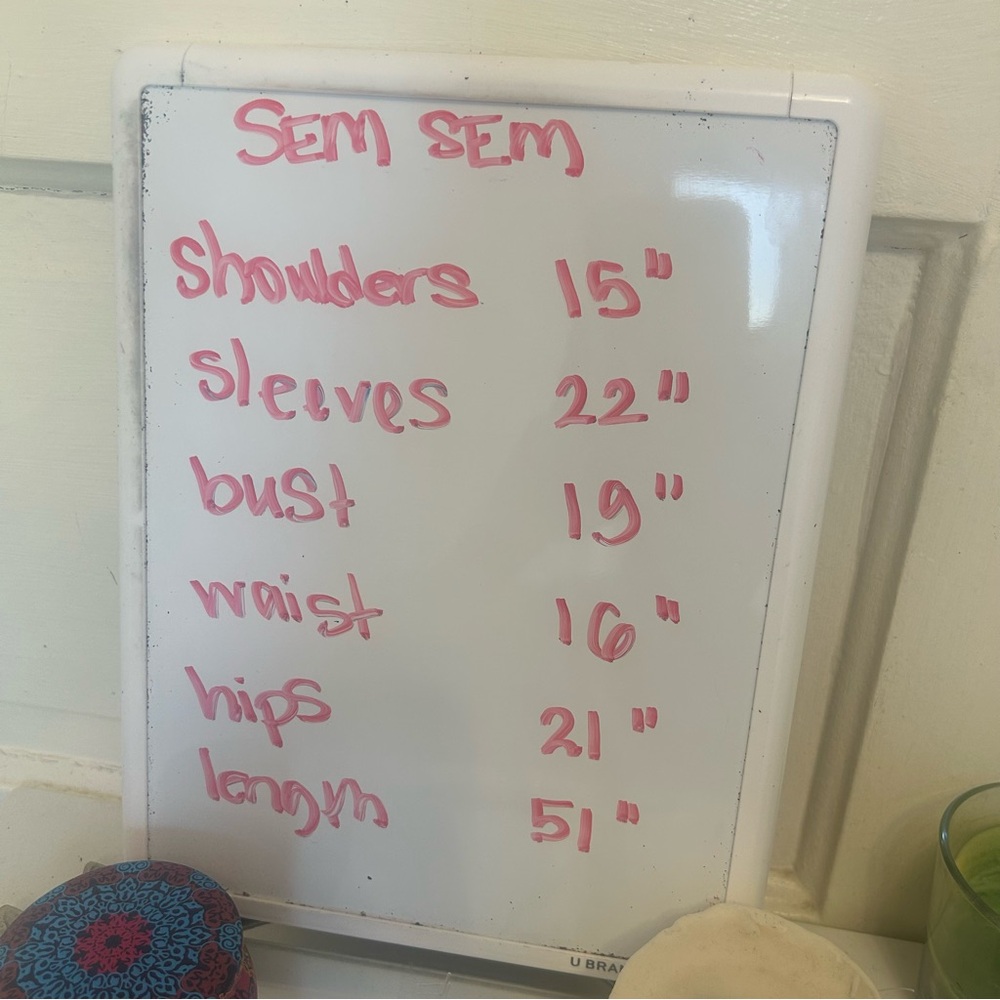 SEM SEM
shoulders 15"
sleeves 22"
bust 19"
waist 16"
hips 21"
length 51"
U BRAN